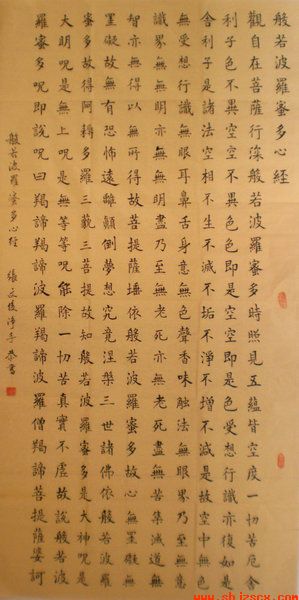 般若波羅蜜多心經
觀自在菩薩行深般若波羅蜜多時照見五蘊皆空度一切苦厄舍
利子色不異空空不異色色即是空空即是色受想行識亦復如是
舍利子是諸法空相不生不滅不垢不淨不增不減是故空中無色
無受想行識無眼耳鼻舌身意無色聲香味觸法無眼界乃至無意
識界無無明亦無無明盡乃至無老死亦無老死盡無苦集滅道無
智亦無得以無所得故菩提薩埵依般若波羅蜜多故心無罣礙無
罣礙故無有恐怖遠離顛倒夢想究竟涅槃三世諸佛依般若波羅
蜜多故得阿耨多羅三藐三菩提故知般若波羅蜜多是大神呪是
大明呪是無上呪是無等等呪能除一切苦真實不虛故說般若波
羅蜜多呪即說呪曰羯諦羯諦波羅羯諦波羅僧羯諦菩提薩婆訶
般若波羅蜜多心經 淨手恭書
www.shjzscx.com